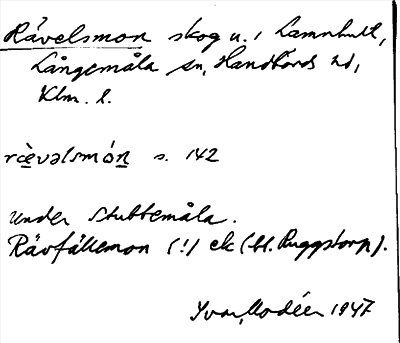 Rävelsmon skog u. i Lamnhult,
Långemåla sn, Handbörds hd,
Klm. l.
rævəlsmón s. 142
under Stubbemåla.
Rävfällemon (!) ek (bl. Ruggstorp).
Yvar Modéer 1947